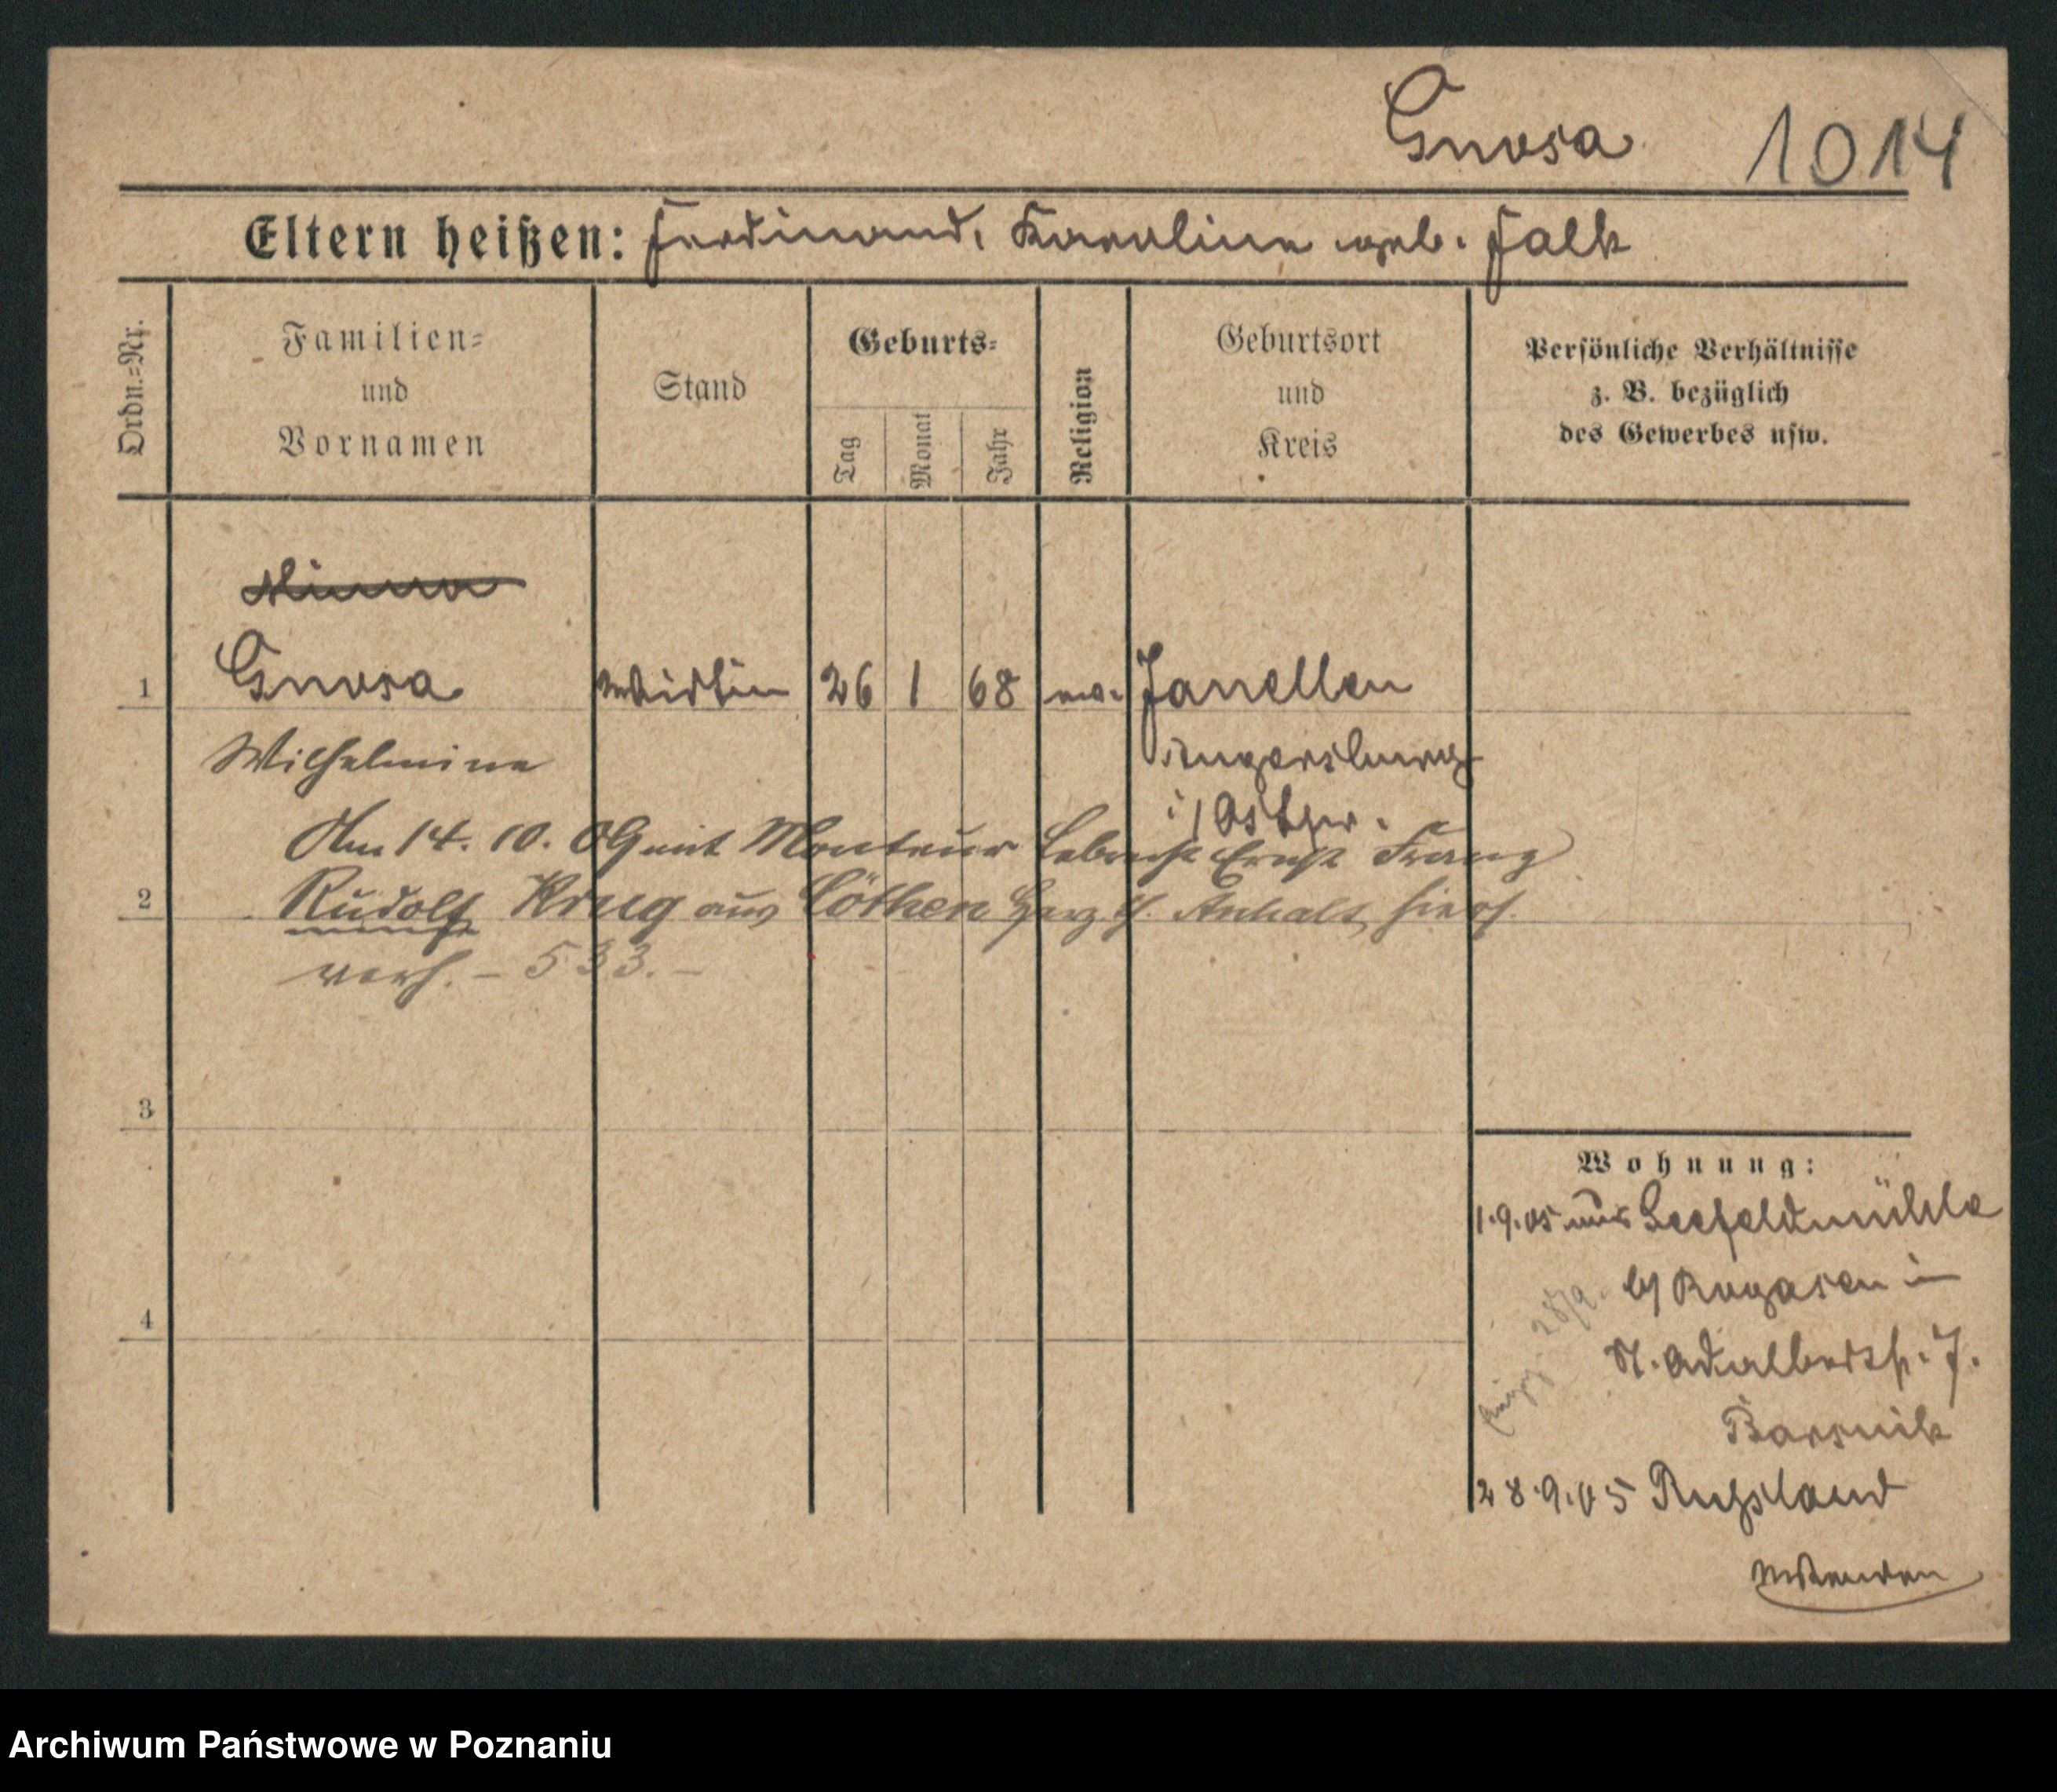 Gnosa 1014
Eltern heißen: Ferdinand, Karoline geb. Falk
Ordn.-Nr.
Familien-
und
Vornamen
Stand
Geburts-
Tag
Monat
Jahr
Religion
Geburtsort
und
Kreis
Persönliche Verhältnisse
z. B. bezüglich
des Gewerbes usw.
Minna
1 Gnosa Wirtin 26 1 68 ev. Janellen
Wilhelmine Angerburg
i/Ostpr.
Am 14. 10. 09 mit Monteur Lebrecht Ernst Franz
2 Rudolf Krug aus Cöthen Herzgt. Anhalt hier
verh. – 533. –
3
Wohnung:
1.9.05 aus Seefeldmühle
b/ Rogasen in
4 28/9.
St. Adalbertstr. 7.
28.9.05 Russland